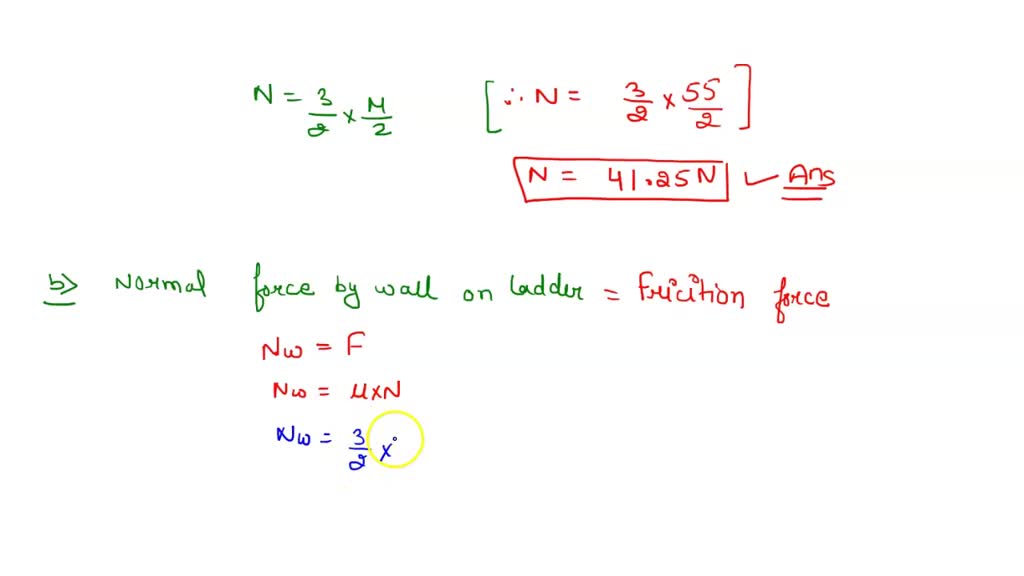 N = 3/2 × M/2 [∴ N = 3/2 × 55/2]
N = 41.25 N ✓ Ans
b> Normal force by wall on ladder = Fricition force
Nw = F
Nw = μ×N
Nw = 3/2 ×